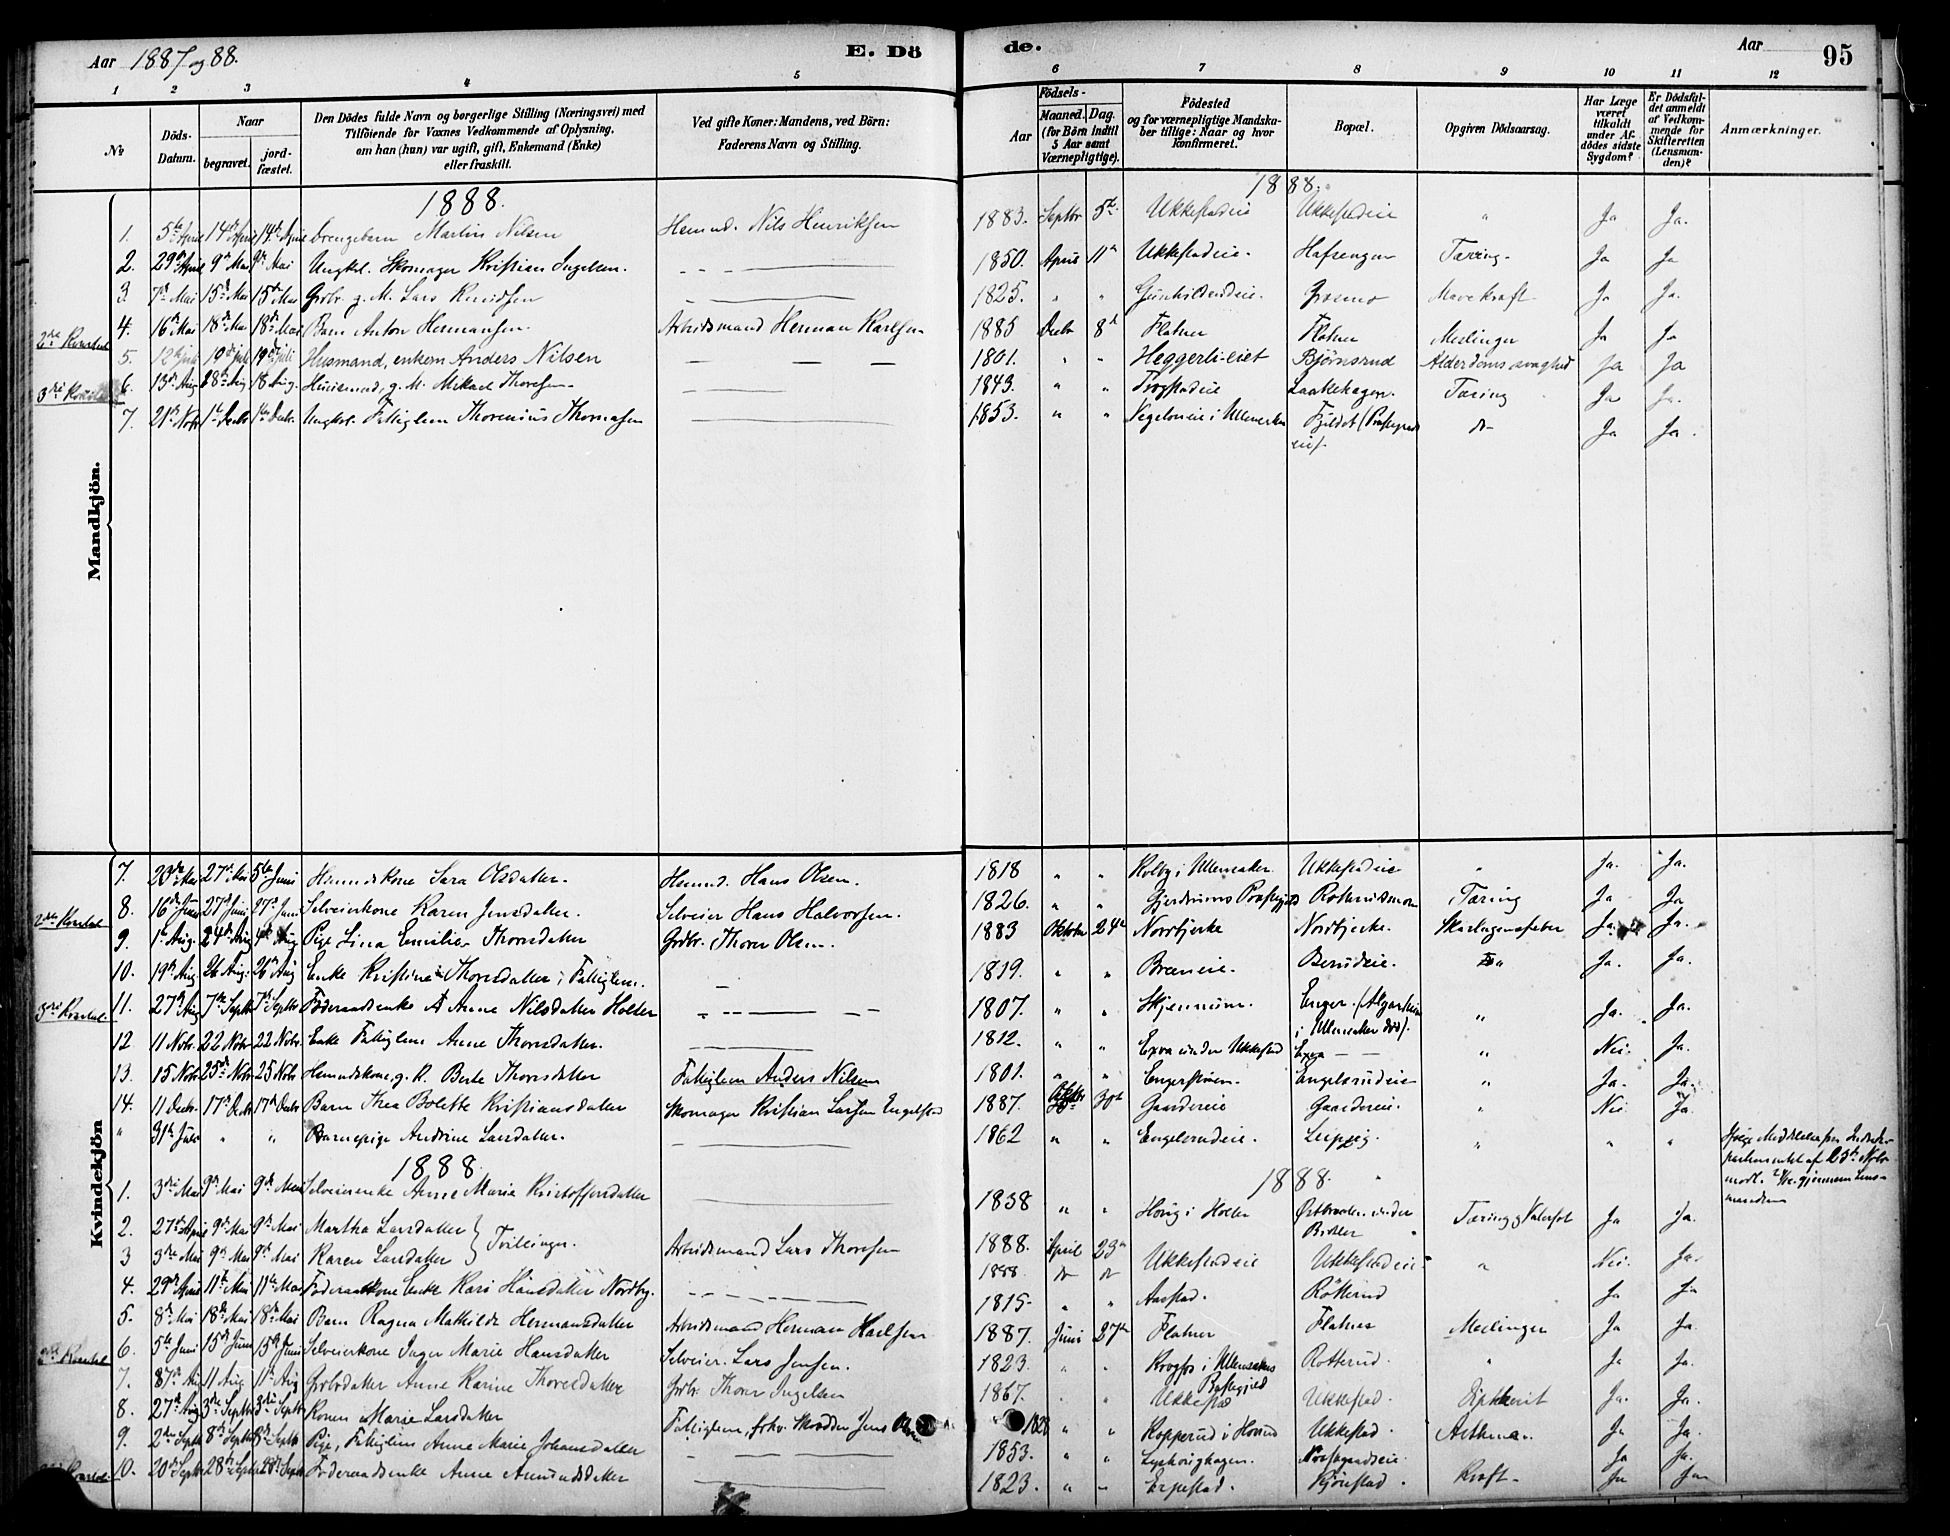 Aar 1887 og 88. E. Dö
de. Aar 95
1 2 3 4 5 6 7 8 9 10 11 12
№
Döds-Datum.
Naar begravet. jord-fæstet.
Den Dödes fulde Navn og borgerlige Stilling (Næringsvei) med Tilföiende for Voxnes Vedkommende af Oplysning, om han (hun) var ugift, gift, Enkemand (Enke) eller fraskilt.
Ved gifte Koner: Mandens, ved Börn: Faderens Navn og Stilling.
Födsels-
Aar Maaned. Dag. (for Börn indtil 5 Aar samt Værnepligtige).
Födested og for værnepligtige Mandska-ber tillige: Naar og hvor konfirmeret.
Bopæl.
Opgiven Dödsaarsag.
Har Læge været tilkaldt under Af-dödes sidste Sygdom?
Er Dödsfal-det anmeldt af Vedkom-mende for Skifteretten (Lensman-den)?
Anmærkninger.
Mandkjön.
1888. 1888.
1. 5te April 14de April 14de April Drengebarn Martin Nilsen Husmd. Nils Henriksen 1883. Septbr 5te Ukkestadeie Ukkestadeie " Ja Ja.
2. 29de April 9de Mai 9de Mai Ungkl. Skomager Kristian Ingelsen. 1850. April 11te Ukkestadeie. Hafsengen Tæring. Ja Ja
3. 7de Mai 15de Mai 15de Mai Grbr. g. M. Lars Knudsen 1825. " " Gunhildrudeie. Mavekræft. Ja Ja.
4. 16de Mai 18de Mai 18de Mai Barn Anton Hermansen. Arbeidsmand Herman Karlsen 1885 Decbr 8de Flatner Flatner Meslinger Ja Ja
5. 12te juli 19de juli 19de juli Husmand, enkem. Anders Nilsen 1801. " " Heggerli-eiet Björnsrud Alderdomssvaghed Ja Ja
6. 13de Aug 18de Aug 18 Aug. Huusmand, g. M. Mikael Thoresen 1843. " " Trogstadeie Laakehagen. Tæring Ja Ja.
7. 21de Nobr 1te Decbr 1te Decbr. Ungkl. Fattiglem Thorenius Thomasen 1853. " " i Ullensaker Fjeldet (Præstegaards eie). do Ja Ja.
Kvindekjön
7. 23de Mai 27de Mai 5te Juni Husmdskone Sara Olsdatter. Husmd. Hans Olsen. 1818 " " Kolby i Ullensaker Ukkestadeie " Ja. Ja.
8. 16de Juni 27de Juni 27de Juni Selveierkone Karen Jensdatter. Selveier Hans Halvorsen. 1826. " " Gjerdrums Præstegjeld Tæring Ja Ja
9. 1te Aug. 24de Aug Pige Lina Emilie Thorsdatter Grdbr. Thorer Olsen. 1883 Oktober 24de Nordbjerke Nordbjerke. Skarlagensfeber Ja. Ja.
10. 19de Aug 26 Aug. 26de Aug Enke Kristine Thorsdatter, Fattiglem. 1819. " " Bræneie. Berudeie. " Ja. Ja.
11. 27de Aug 7de Septbr 7de Septbr Föderaadsenke Anne Nilsdatter Holter 1807. " " Skjennum. Enger. (Algarheim i Ullensaker död). " Ja. Ja.
12 11 Nobr. 22 Nobr 22 Nobr Enke Fattiglem Anne Thorsdatter. 1812. " " Exra under Ukkestad Exra " Nei. Ja.
13. 15 Nobr. 25de Nobr. 25 Nobr Husmdskone, g. K. Berte Thorsdatter Fattiglem Anders Nilsen 1801. " " Engerstuen. Engelsrudeie " Ja. Ja.
14. 11 Decbr. 17de Decbr 17de Decbr Barn Thea Bolette Kristiansdatter Skomager Kristian Larsen Engelstad 1887. Oktbr 30te Gaardereie Gaardereie. " Nei Ja.
" 31te Juli " " Barnepige Andrine Larsdatter. 1862 " " Engelsrudeie. Leipzig. " " "
Ifølge Meddelelse fra Indredepartementet af 25de Novbr
1888. 1888.
1. 3die Mai 9de Mai 9de Mai Selveierenke Anne Marie Kristoffersdatter 1838 " " Hönsi i Holter Östbraaten under Brotter Tæring og Vatersot Ja Ja.
2. 27de April 9de Mai 9de Mai Martha Larsdatter } Tvillinger. Arbeidsmand Lars Thoresen 1888. April 23de Ukkestadeie Ukkestadeie " Nei. Ja.
3 3die Mai 9de Mai 9de Mai Karen Larsdatter 1888. do do
4. 29de April 11te Mai 11te Mai Föderaadskone Enke Kari Hansdatter Nordby. 1815. " " Aastad. Rötterud Ja Ja
5. 8de Mai 18de Mai 18de Mai Barn Ragna Mathilde Hermansdatter Arbeidsmand Herman Karlsen 1887. Juni 27de Flatner Flatner Meslinger Ja Ja.
6. 5te Juni 15de Juni 15de Juni Selveierkone Inger Marie Hansdatter Selveier. Lars Jensen. 1823. " " Krogfos i Ullensakers Præstegjeld Rotterud. " Ja Ja.
7. 11 Aug 11te Aug Grdbrdatter Anne Karine Thoresdatter Grdbr Thorer Ingelsen 1867. " " Ukkestad Ukkestad. Difterit Ja. Ja.
8. 27de Aug 3die Septbr 3die Septbr Konen Marie Larsdatter Fattiglem, forhv. Skrædder Jens 1828 " " Kopperud i Hovind Ukkestad. Asthma. Ja Ja.
9. 2den Septbr 8de Septbr 8de Septbr Pige, Fattiglem Anne Marie Johansdatter 1853. " " Præstegaardseie. Ja Ja.
10. 20de Septbr 28de Septbr 28de Septbr Föderaadsenke Anne Amundsdatter 1823. " " Erpestad. Kjörstad. Kræft. Ja Ja
2det Kvartal
3die Kvartal
2det Kvartal
3die Kvartal
2det Kvartal
3die Kvartal